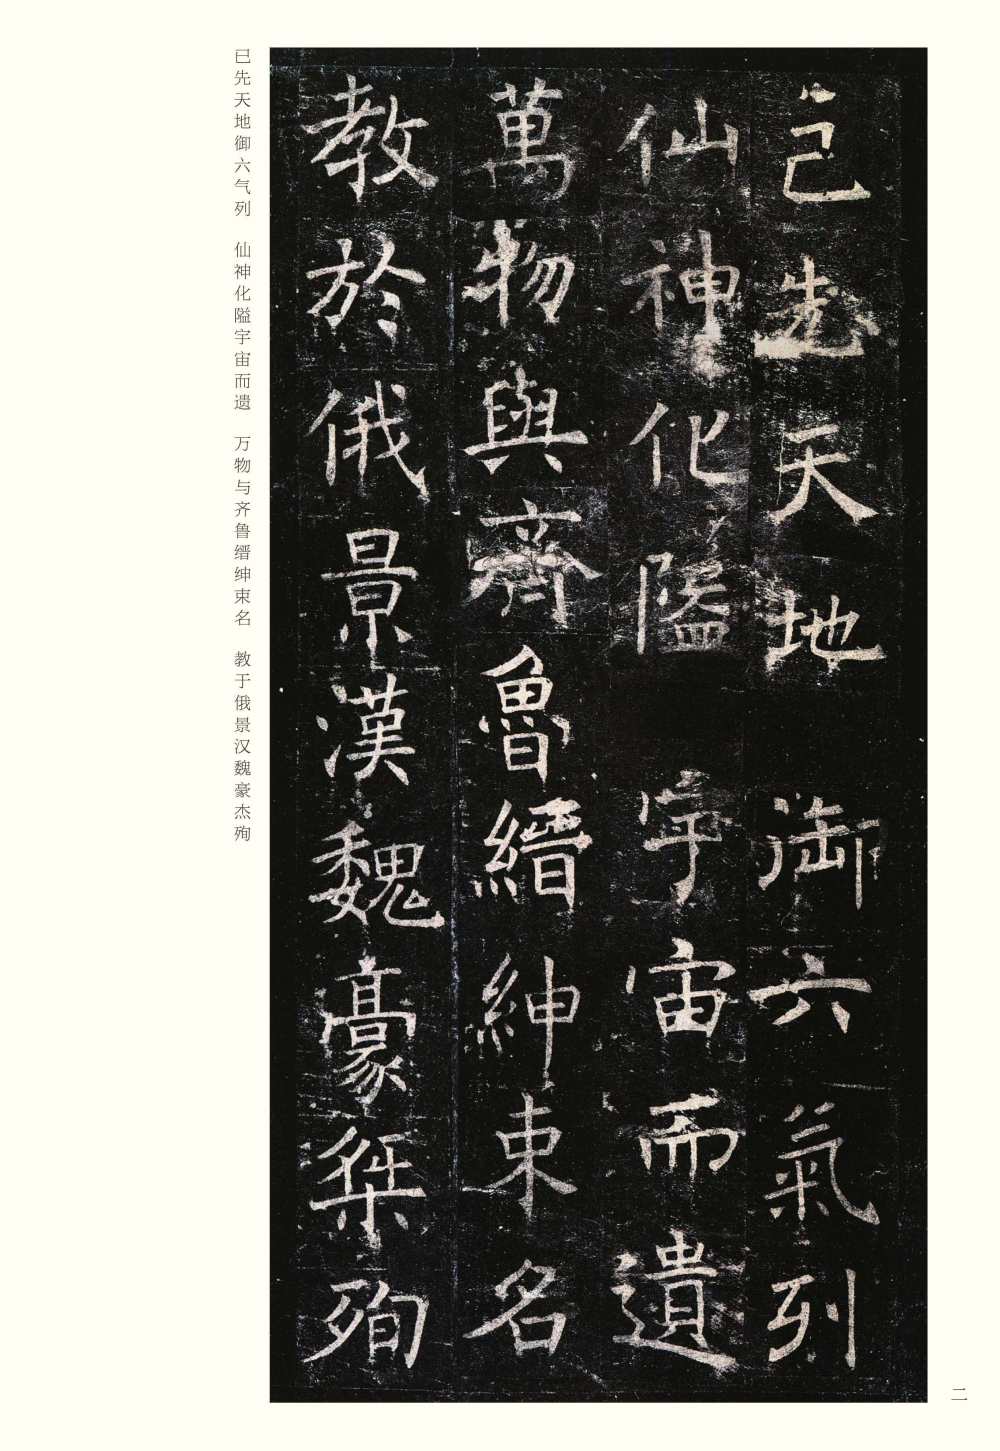 己先天地御六氣列
仙神化隘宇宙而遺
萬物與齊魯縉紳束名
教於俄景漢魏豪桀殉
巳先天地御六气列　仙神化隘宇宙而遗　万物与齐鲁缙绅束名　教于俄景汉魏豪杰殉
二